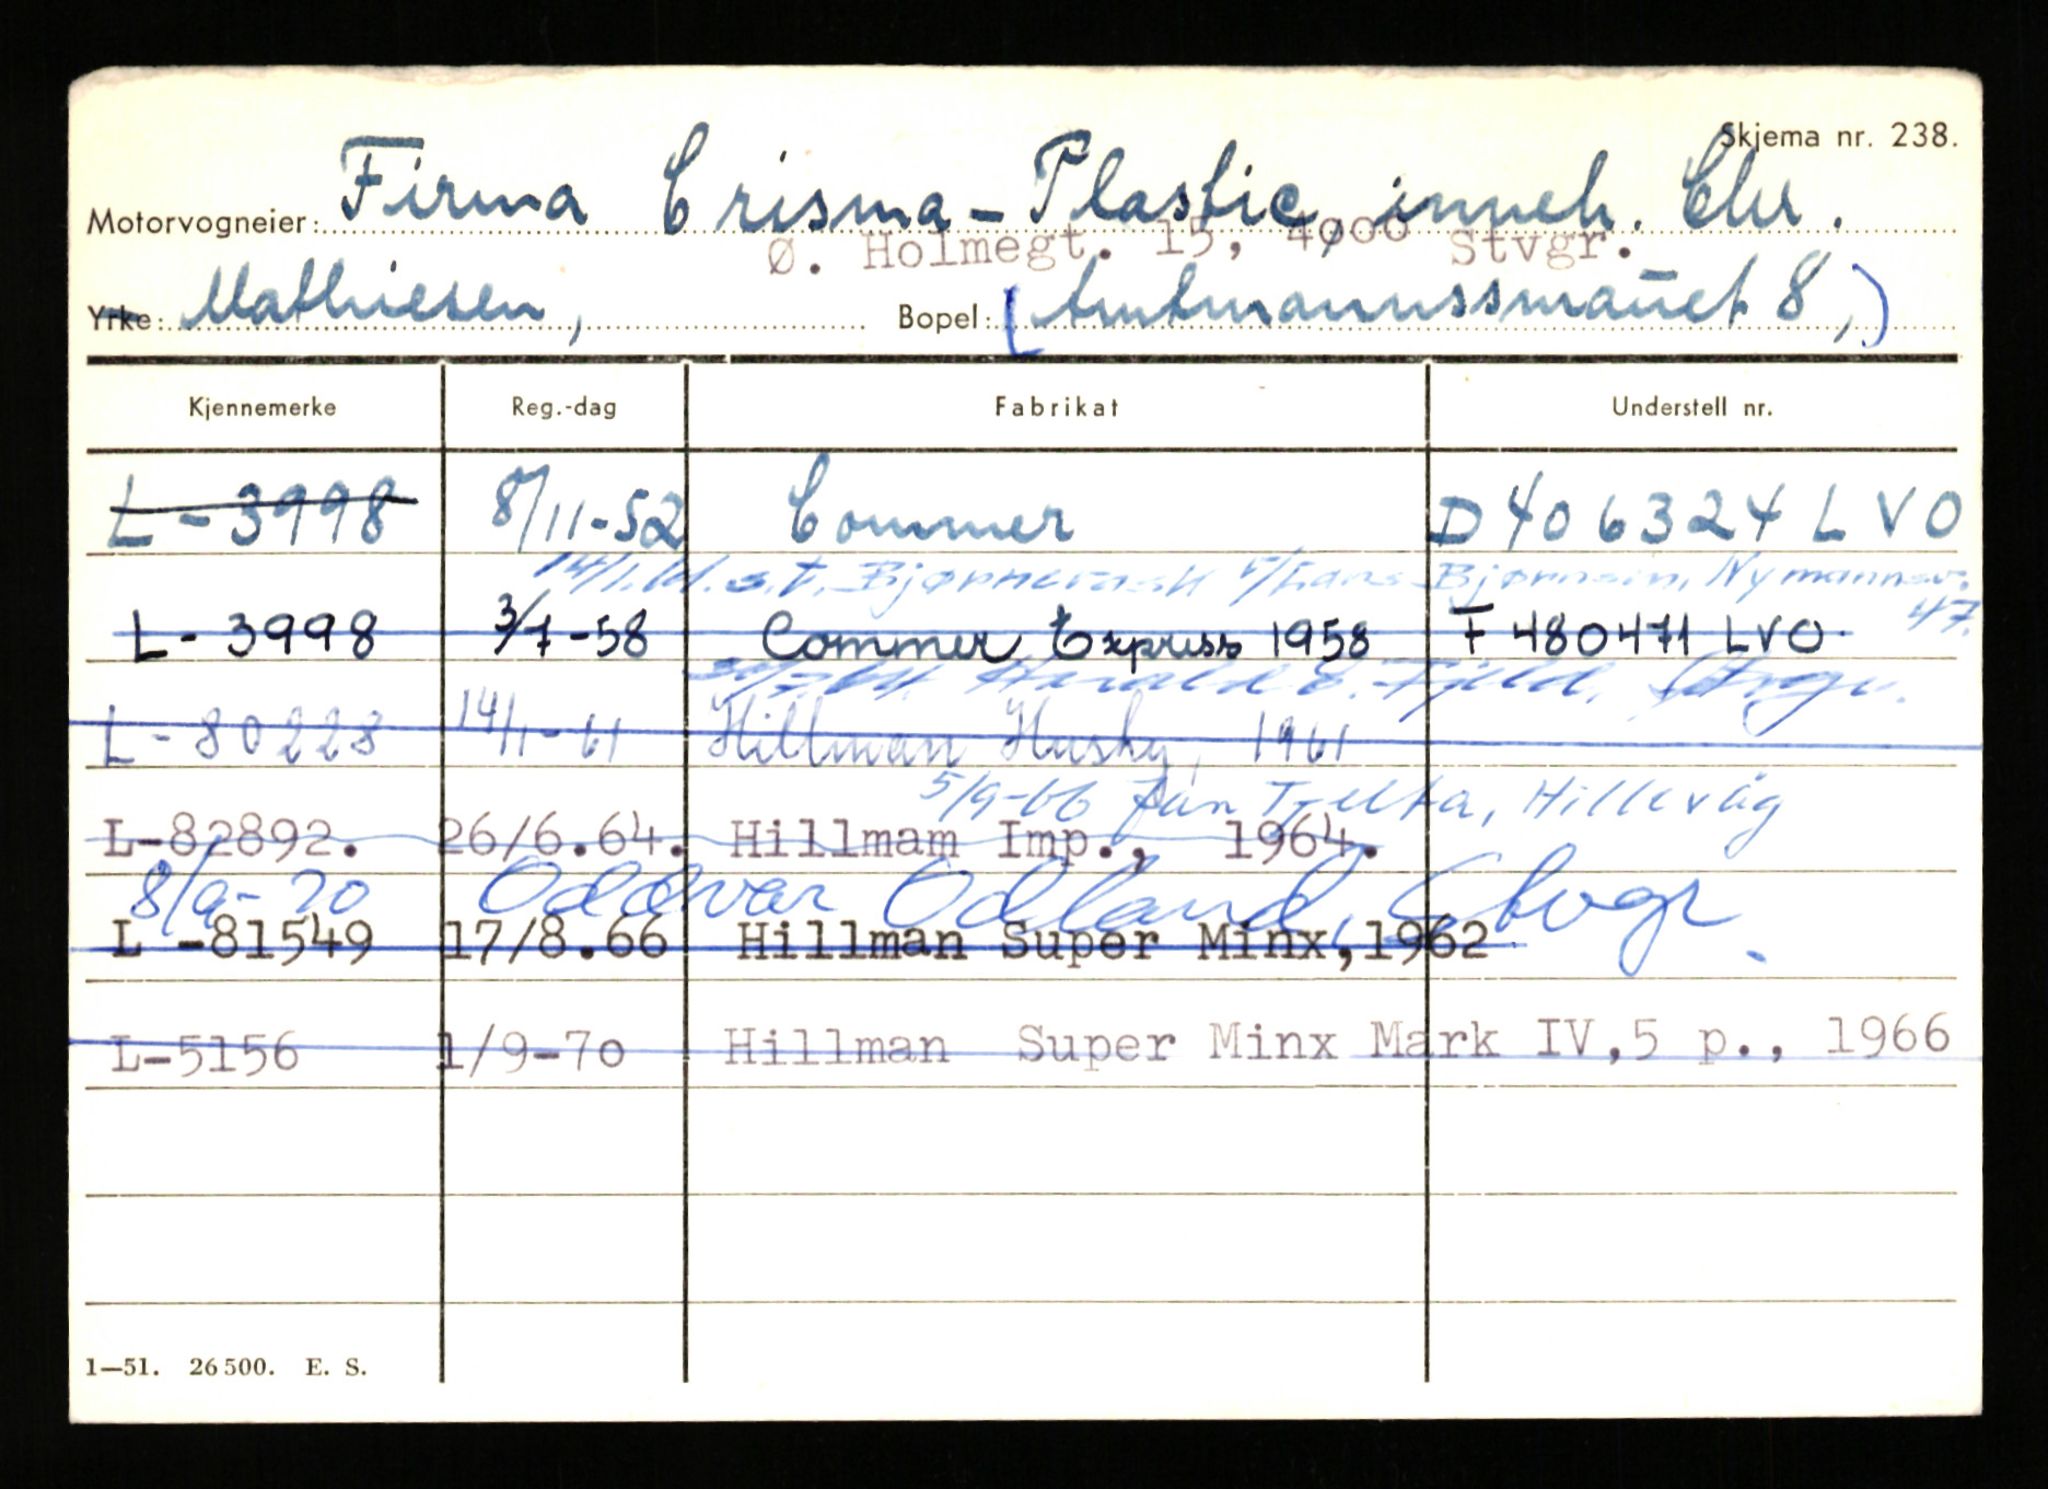 Skjema nr. 238.
Motorvogneier: Firma Crisma-Plastic, inneh. Chr.
Ø. Holmegt. 15, 4000 Stvgr.
Yrke: - Mathiesen, Bopel: (Amtmannssmauet 8,)
Kjennemerke Reg.-dag Fabrikat Understell nr.
L-3998 8/11-52 Commer D406324 LVO
14/1.61. s.t. Bjørnevask v/Hans Bjørnsen, Nymannsv.
47.
L-3998 3/7-58 Commer Express 1958 F 480471 LVO
Harald E. Fjeld, Stvgr.
L-80228 14/1-61 Hillman Husky, 1961
5/9-66 Jan Tjelta, Hillevåg
L-82892. 26/6.64. Hillmam Imp., 1964.
8/9-70 Oddvar Ødland, Stvgr.
L -81549 17/8.66 Hillman Super Minx,1962
L-5156 1/9-70 Hillman Super Minx Mark IV,5 p., 1966
1—51. 26500. E. S.